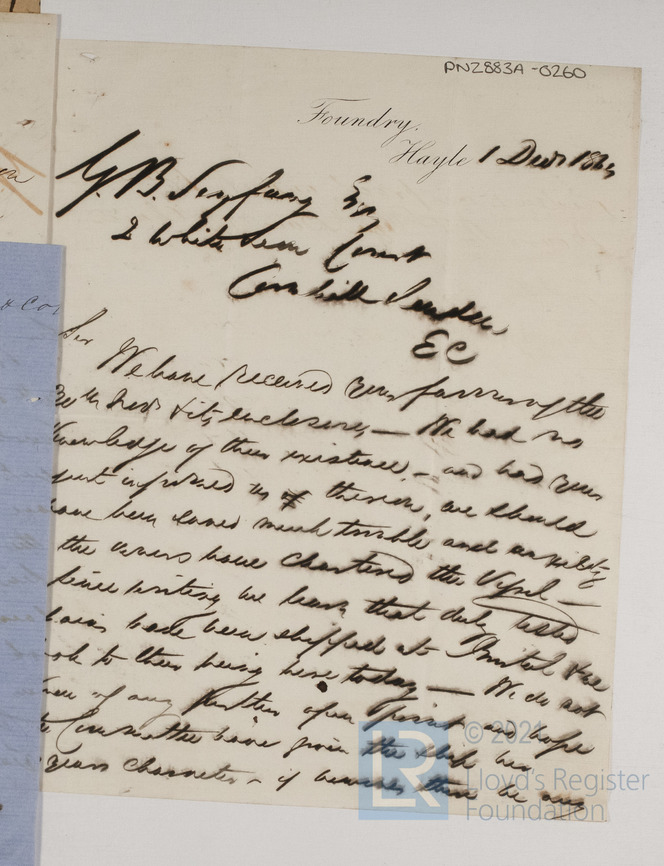 PN2883A-0260
Foundry,
Hayle 1 Decr 186
G. B. Seyfang Esq
2 White Lion Court
Cornhill London
EC
Sir
We have received your favour of the
30th Novr & its enclosures, — We had no
knowledge of their existence, — and had you
but informed us of them, we should
have been saved much trouble and anxiety
the owners have chartered the Vessel —
since writing we learn that duly tested
chains have been shipped at Bristol & we
look to them being here today — We do not
know of any further open point and hope
the Committee have given the ship her
years character — if however there be any
& Co
© 2021
LR
Lloyd's Register
Foundation